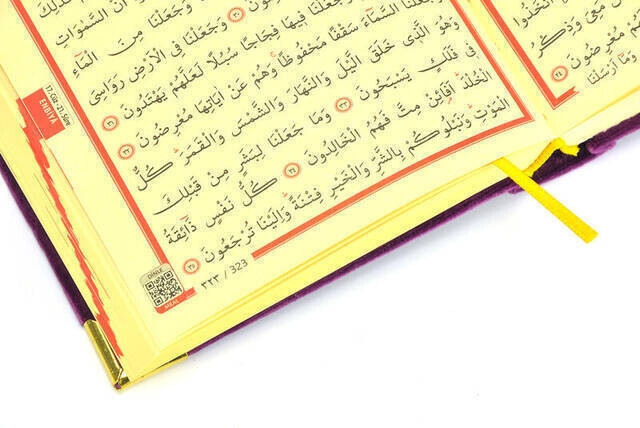 اتَّخَذُوا
مَعِيَ وَذِكْرُ
مُعْرِضُونَ ٢٤
وَمَٓا اَرْسَلْنَا
اَنَّ السَّمٰوَاتِ
وَجَعَلْنَا مِنَ الْمَٓاءِ
٣٠ وَجَعَلْنَا فِي الْاَرْضِ رَوَاسِيَ
وَجَعَلْنَا فِيهَا فِجَاجًا سُبُلًا لَعَلَّهُمْ يَهْتَدُونَ ٣١
وَجَعَلْنَا السَّمَٓاءَ سَقْفًا مَحْفُوظًا وَهُمْ عَنْ اٰيَاتِهَا مُعْرِضُونَ ٣٢
وَهُوَ الَّذِي خَلَقَ الَّيْلَ وَالنَّهَارَ وَالشَّمْسَ وَالْقَمَرَ كُلٌّ
فِي فَلَكٍ يَسْبَحُونَ ٣٣ وَمَا جَعَلْنَا لِبَشَرٍ مِنْ قَبْلِكَ
الْخُلْدَ اَفَا۬ئِنْ مِتَّ فَهُمُ الْخَالِدُونَ ٣٤ كُلُّ نَفْسٍ ذَٓائِقَةُ
الْمَوْتِ وَنَبْلُوكُمْ بِالشَّرِّ وَالْخَيْرِ فِتْنَةً وَاِلَيْنَا تُرْجَعُونَ ٣٥
17.Cüz-21.Sûre
ENBİYÂ
DİNLE
٣٢٣ / 323